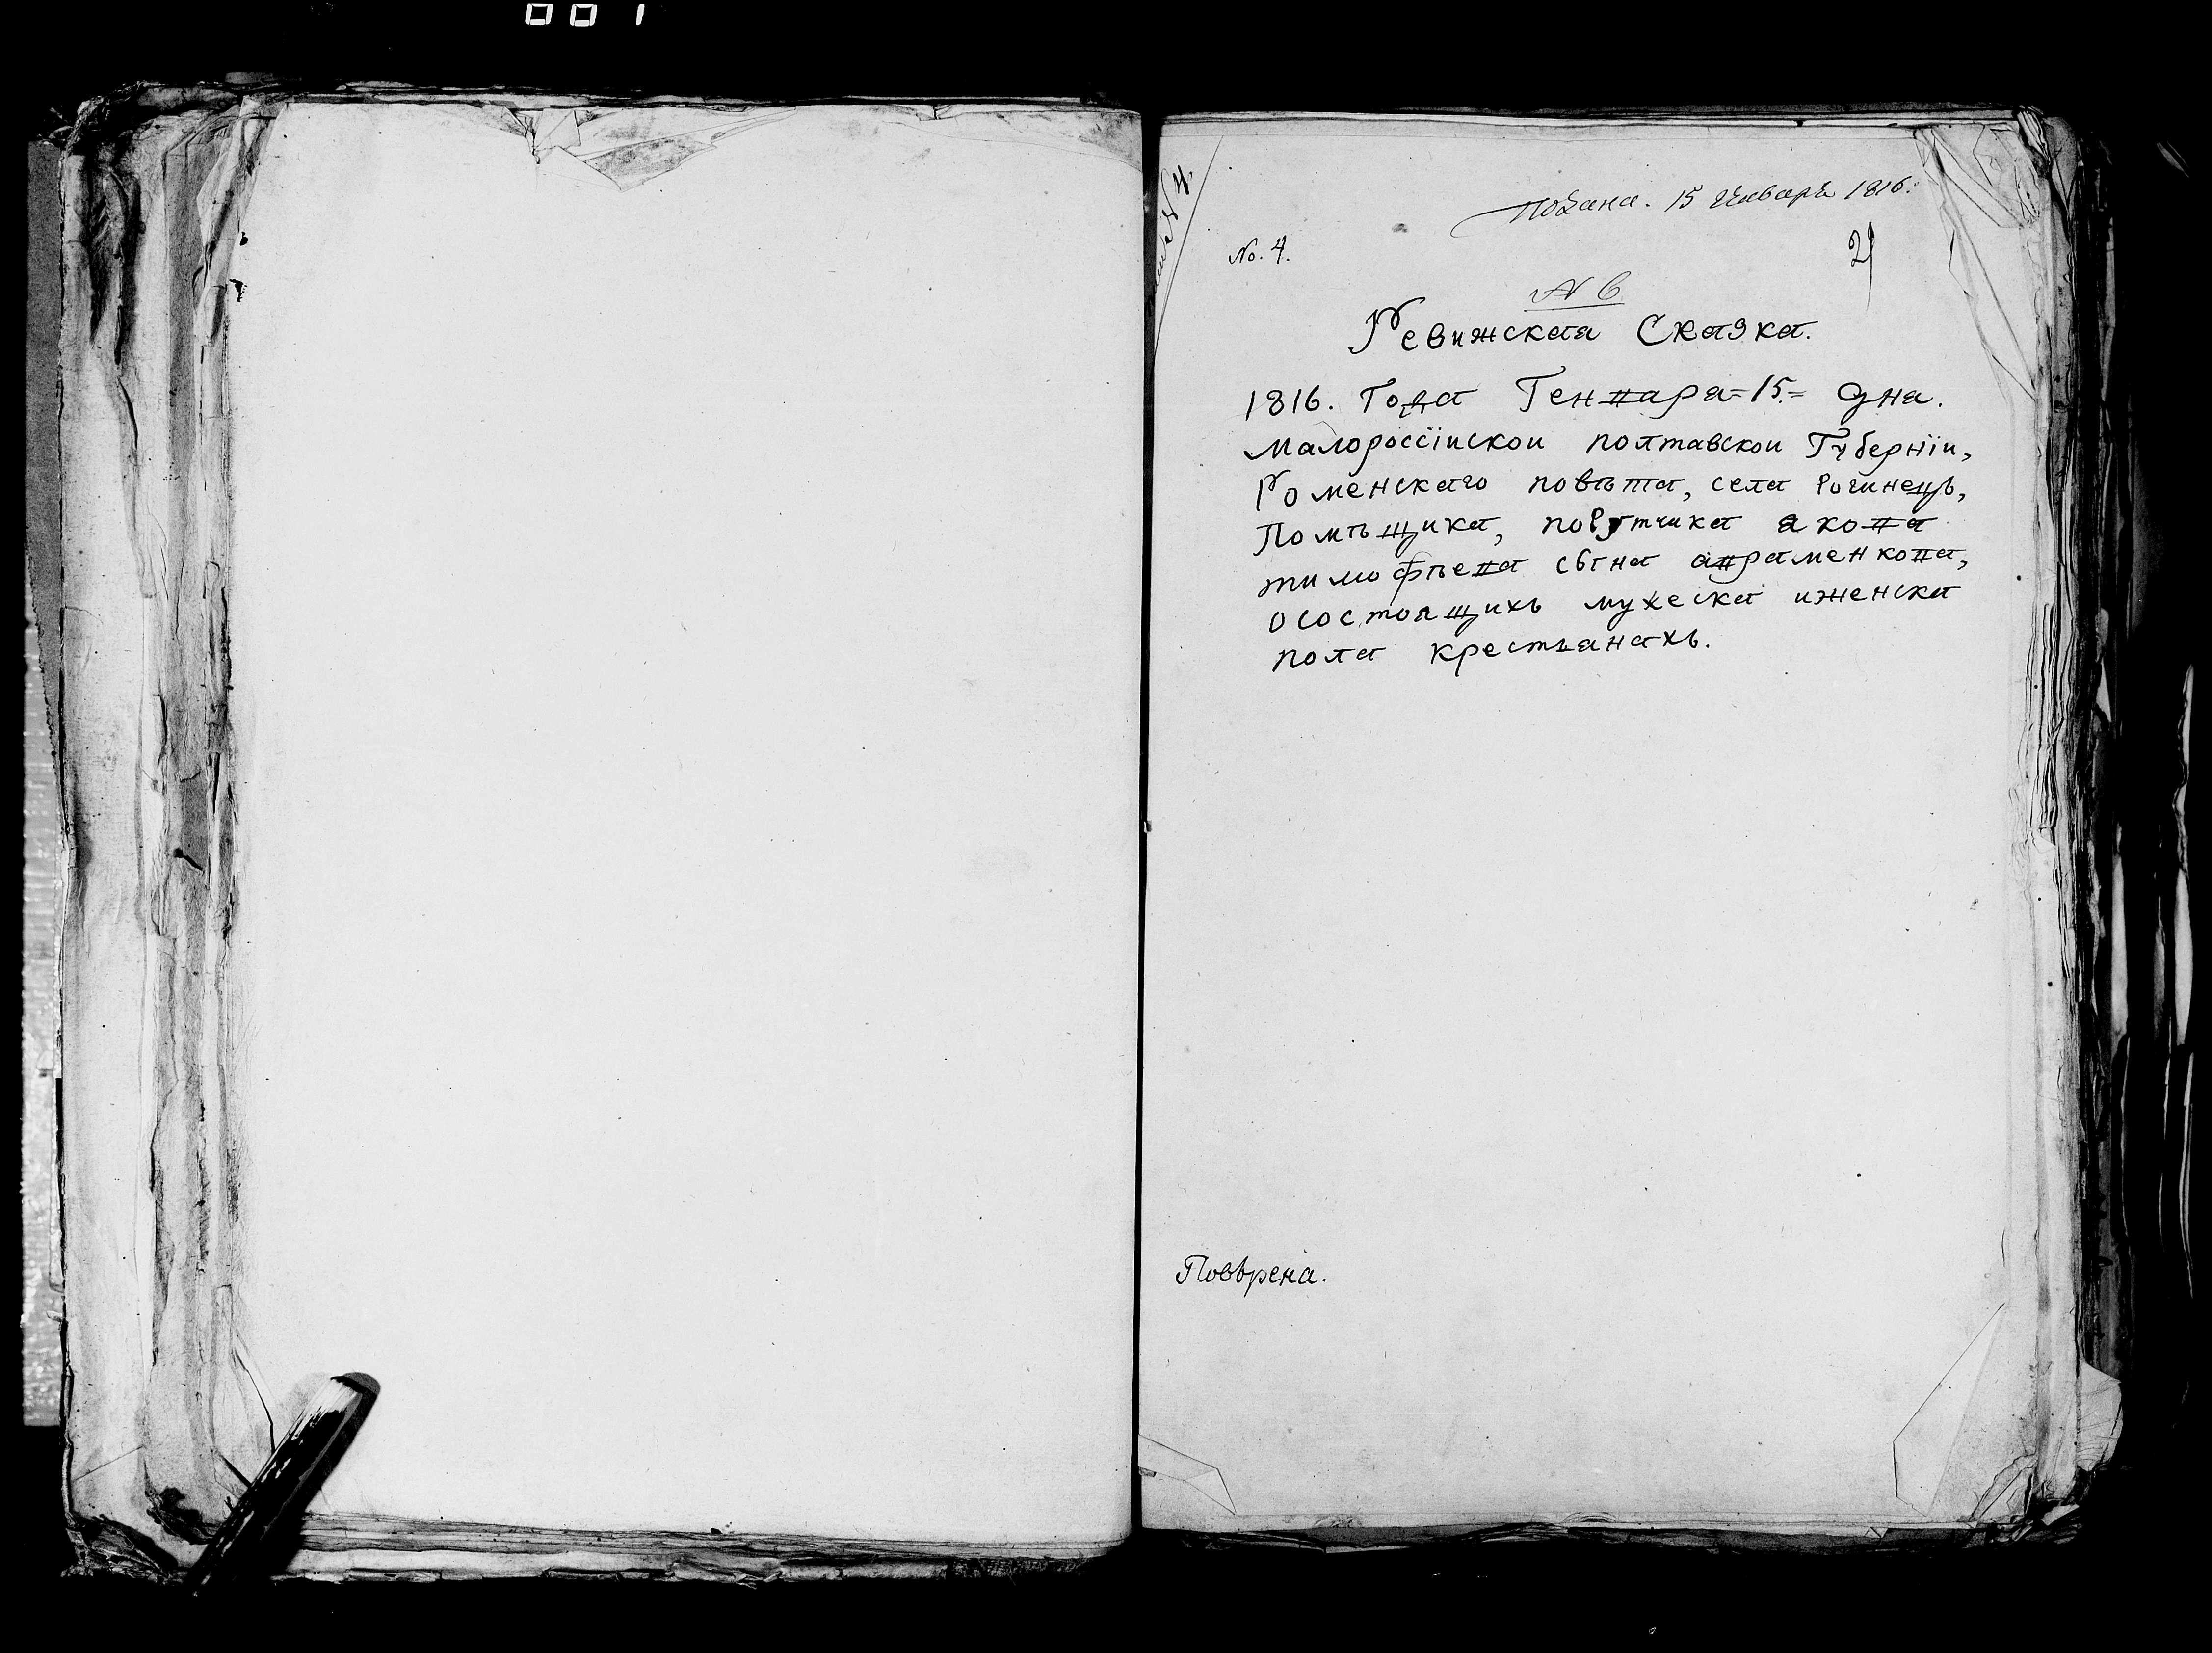 001
Подана. 15 Генваря 1816:
No. 4.
2
N 6
Ревижская Сказка.
1816. Года Генваря = 15 = дня.
малороссїискои полтавскои Губернїи,
Роменскаго повѣта, села Рогинецъ,
Помѣщика, порутчика якова
тимофѣева сына авраменкова,
осостоящихъ мужеска иженска
пола крестьянахъ.
Повѣрена.